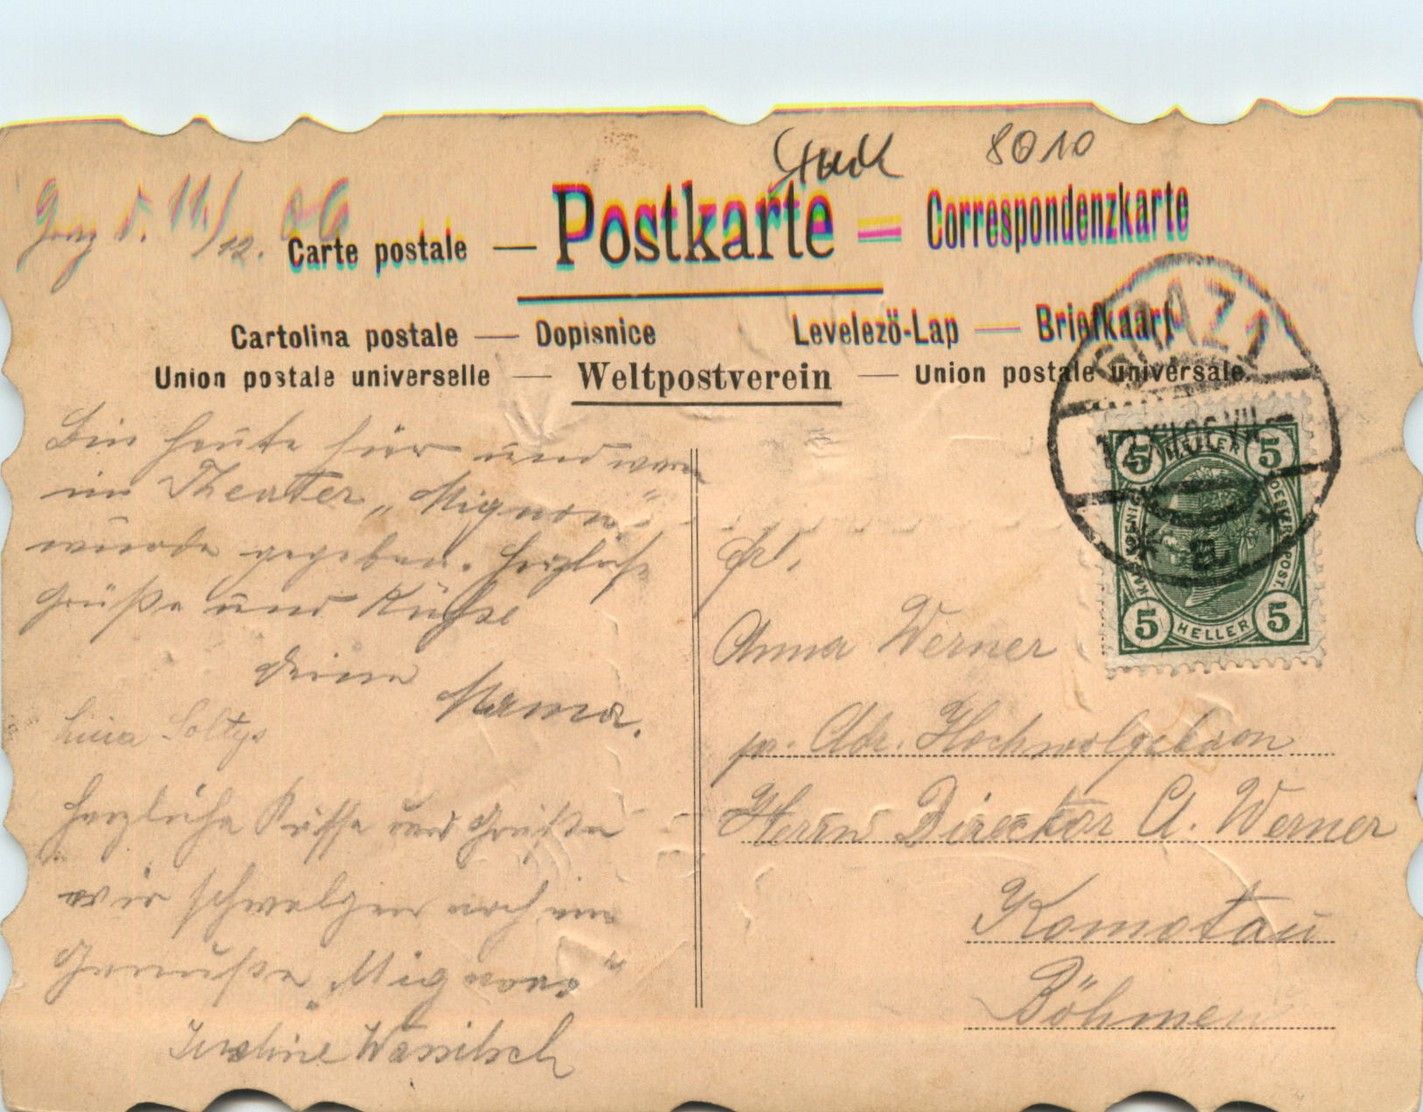 8010
Graz d. 11./12. 06
Carte postale — Postkarte = Correspondenzkarte
Cartolina postale — Dopisnice Levelező-Lap — Briefkaart
Union postale universelle — Weltpostverein — Union postale universale
GRAZ 1
5 HELLER 5
5 HELLER 5
Bin heute hier und waren
im Theater „Mignon"
wurde gegeben. Herzlichste
Grüße und Küsse
Deine Mama.
Soltys
Herzliche Küsse und Grüße
wir schwelgen noch im
Genuße „Mignon"
Wassitsch
Frl.
Anna Werner
pr. Adr. Hochwolgeboren
Herrn Director A. Werner
Komotau
Böhmen